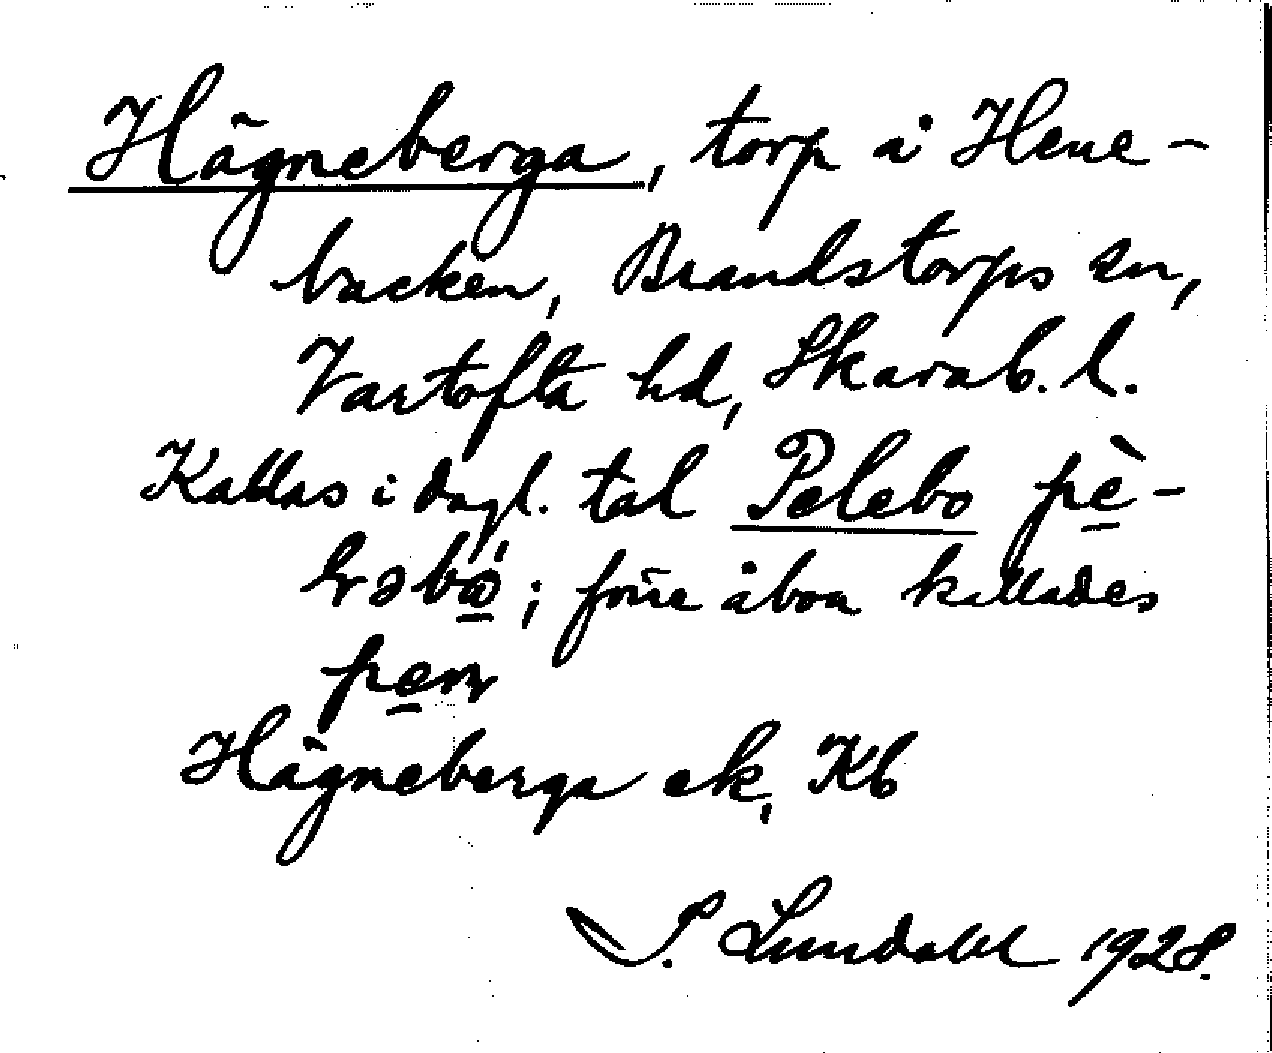 Hägneberga, torp å Hene-
backen, Brandstorps sn,
Vartofta hd, Skarab. l.
Kallas i dagl. tal Pelebo pè-
ləbó; förre åbon kallades
pen
Hägneberga ek, Kb
P. Lundahl 1928.